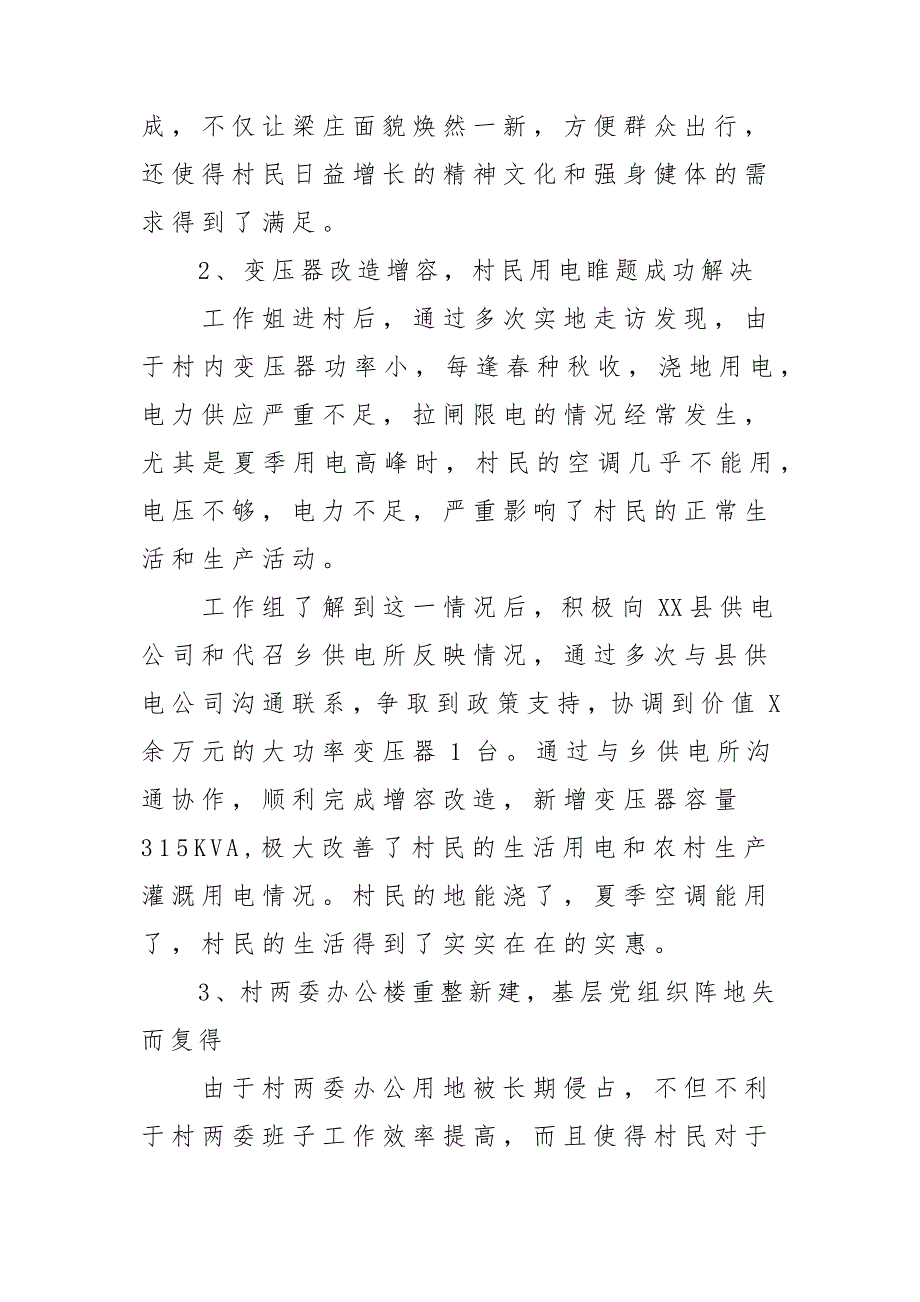 成，不仅让梁庄面貌焕然一新，方便群众出行，
还使得村民日益增长的精神文化和强身健体的需
求得到了满足。
2、变压器改造增容，村民用电睢题成功解决
工作姐进村后，通过多次实地走访发现，由
于村内变压器功率小，每逢春种秋收，浇地用电，
电力供应严重不足，拉闸限电的情况经常发生，
尤其是夏季用电高峰时，村民的空调几乎不能用，
电压不够，电力不足，严重影响了村民的正常生
活和生产活动。
工作组了解到这一情况后，积极向 XX 县供电
公司和代召乡供电所反映情况，通过多次与县供
电公司沟通联系，争取到政策支持，协调到价值 X
余万元的大功率变压器 1 台。通过与乡供电所沟
通协作，顺利完成增容改造，新增变压器容量
315KVA,极大改善了村民的生活用电和农村生产
灌溉用电情况。村民的地能浇了，夏季空调能用
了，村民的生活得到了实实在在的实惠。
3、村两委办公楼重整新建，基层党组织阵地失
而复得
由于村两委办公用地被长期侵占，不但不利
于村两委班子工作效率提高，而且使得村民对于